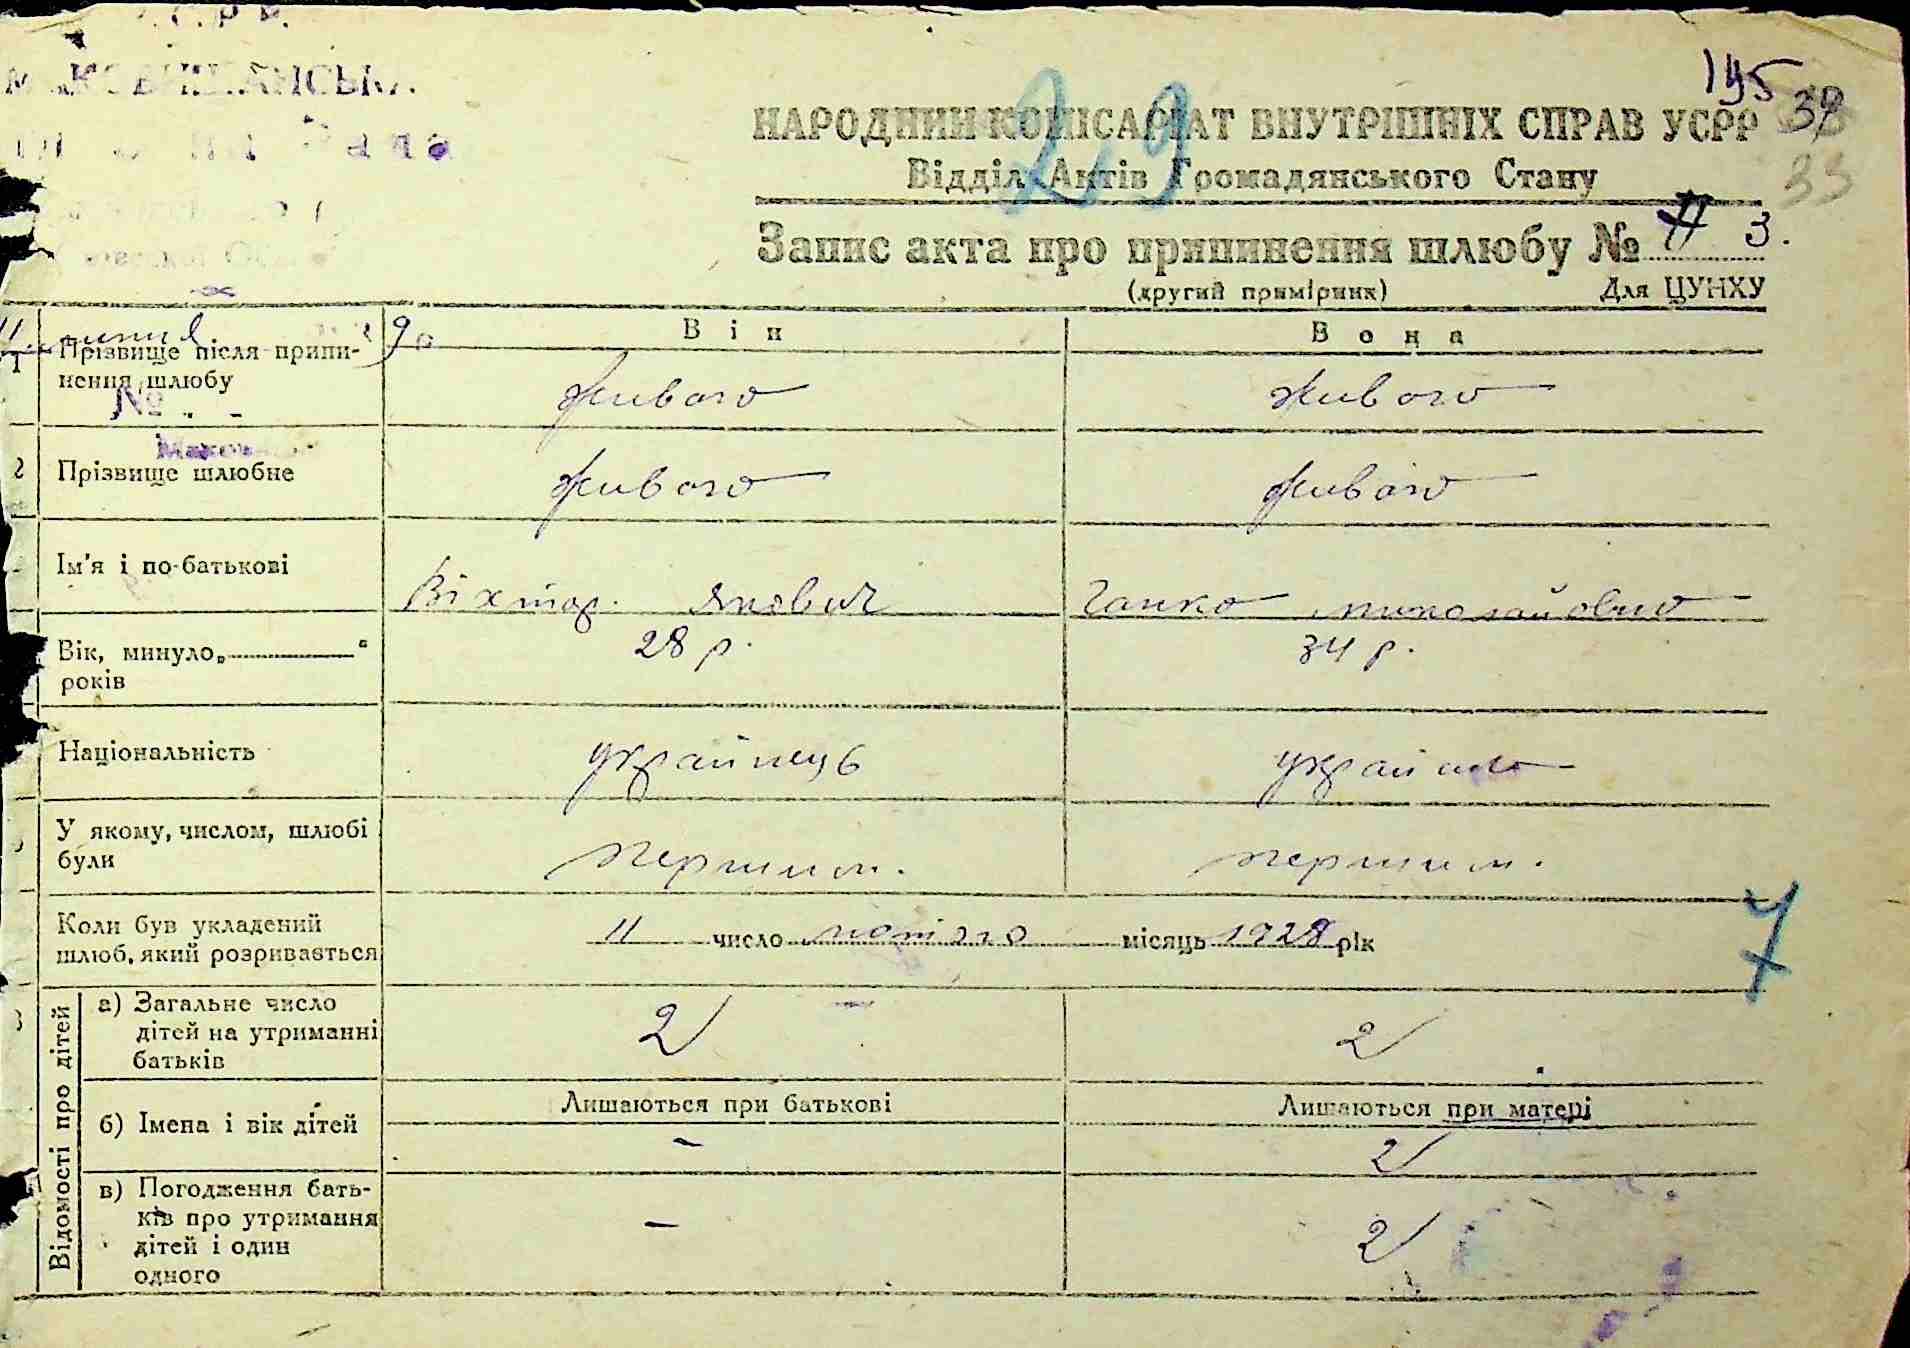 195
39
33
29
НАРОДНИЙ КОМІСАРІАТ ВНУТРІШНІХ СПРАВ УСРР
Відділ Актів Громадянського Стану
Запис акта про припинення шлюбу № 3.
(другий примірник) Для ЦУНХУ
Він Вона
1 Прізвище після припинення шлюбу Живаго Живаго
№
2 Прізвище шлюбне Живаго Живаго
Ім'я і по-батькові Віктор Якович Ганна Миколаївна
Вік, минуло „ “ років 28 р. 34 р.
Національність українець україн
У якому, числом, шлюбі були першим. першим.
Коли був укладений шлюб, який розривається 11 число лютого місяць 1928 рік
7
Відомості про дітей
а) Загальне число дітей на утриманні батьків 2 2
б) Імена і вік дітей
Лишаються при батькові Лишаються при матері
- 2
в) Погодження батьків про утримання дітей і один одного - 2